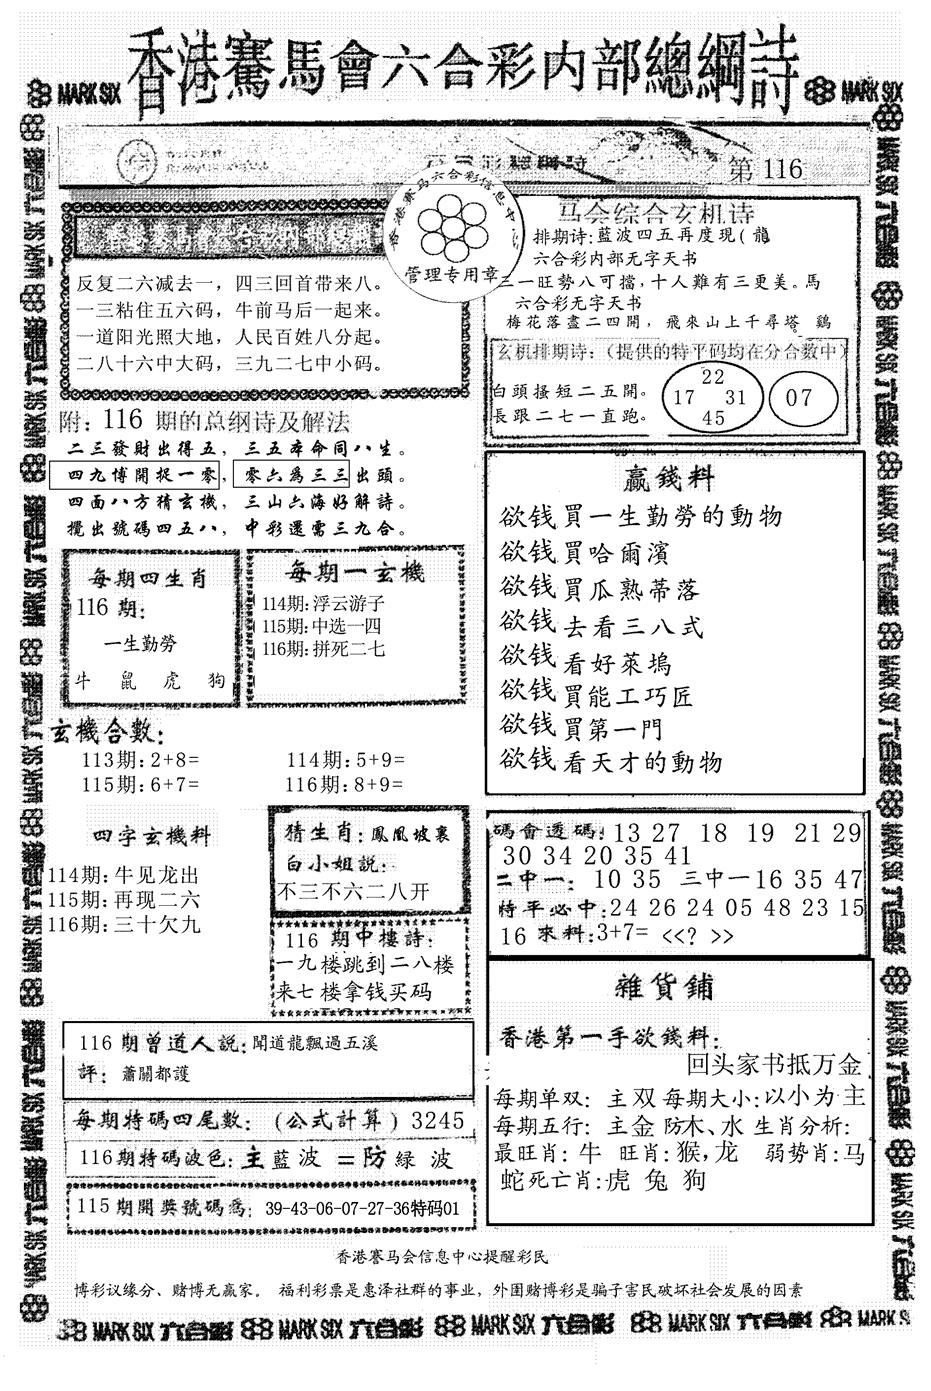 香港賽馬會六合彩内部總綱詩
MARK SIX
MARK SIX
第 116
香港赛马六合彩信息中心
管理专用章
反复二六减去一，四三回首带来八。
一三粘住五六码，牛前马后一起来。
一道阳光照大地，人民百姓八分起。
二八十六中大码，三九二七中小码。
马会综合玄机诗
排期诗:藍波四五再度現(龍
六合彩内部无字天书
三一旺勢八可擋,十人難有三更美。馬
六合彩无字天书
梅花落盡二四開，飛來山上千尋塔 鷄
玄机排期诗：(提供的特平码均在分合数中)
白頭搔短二五開。
長跟二七一直跑。
22
17 31
45
07
附：116 期的总纲诗及解法
二三發財出得五，三五本命同八生。
四九博開捉一零，零六為三三出頭。
四面八方猜玄機，三山六海好解詩。
攪出號碼四五八，中彩還需三九合。
每期四生肖
116 期:
一生勤勞
牛 鼠 虎 狗
每期一玄機
114期:浮云游子
115期:中选一四
116期:拼死二七
玄機合數:
113期:2+8=
114期:5+9=
115期:6+7=
116期:8+9=
四字玄機料
114期:牛见龙出
115期:再现二六
116期:三十欠九
猜生肖:鳳凰坡裏
白小姐説:
不三不六二八开
116 期中樓詩:
一九楼跳到二八楼
来七楼拿钱买码
赢錢料
欲钱買一生勤勞的動物
欲钱買哈爾濱
欲钱買瓜熟蒂落
欲钱去看三八式
欲钱看好萊塢
欲钱買能工巧匠
欲钱買第一門
欲钱看天才的動物
碼會透碼:13 27 18 19 21 29
30 34 20 35 41
二中一: 10 35 三中一16 35 47
特平必中:24 26 24 05 48 23 15
16 來料:3+7= <<? >>
雜貨鋪
香港第一手欲錢料:
回头家书抵万金
每期单双: 主双 每期大小:以小为主
每期五行: 主金 防木、水 生肖分析:
最旺肖: 牛 旺肖:猴,龙 弱势肖:马
蛇死亡肖:虎 兔 狗
116 期曾道人説:聞道龍飄過五溪
評: 蕭關都護
每期特碼四尾數: (公式計算) 3245
116期特碼波色:主藍波=防緑波
115期開獎號碼爲: 39-43-06-07-27-36特码01
香港賽马会信息中心提醒彩民
博彩议缘分、赌博无赢家。 福利彩票是惠泽社群的事业，外围赌博彩是骗子害民破坏社会发展的因素
MARK SIX 六合彩 MARK SIX 六合彩 MARK SIX 六合彩 MARK SIX 六合彩 MARK SIX